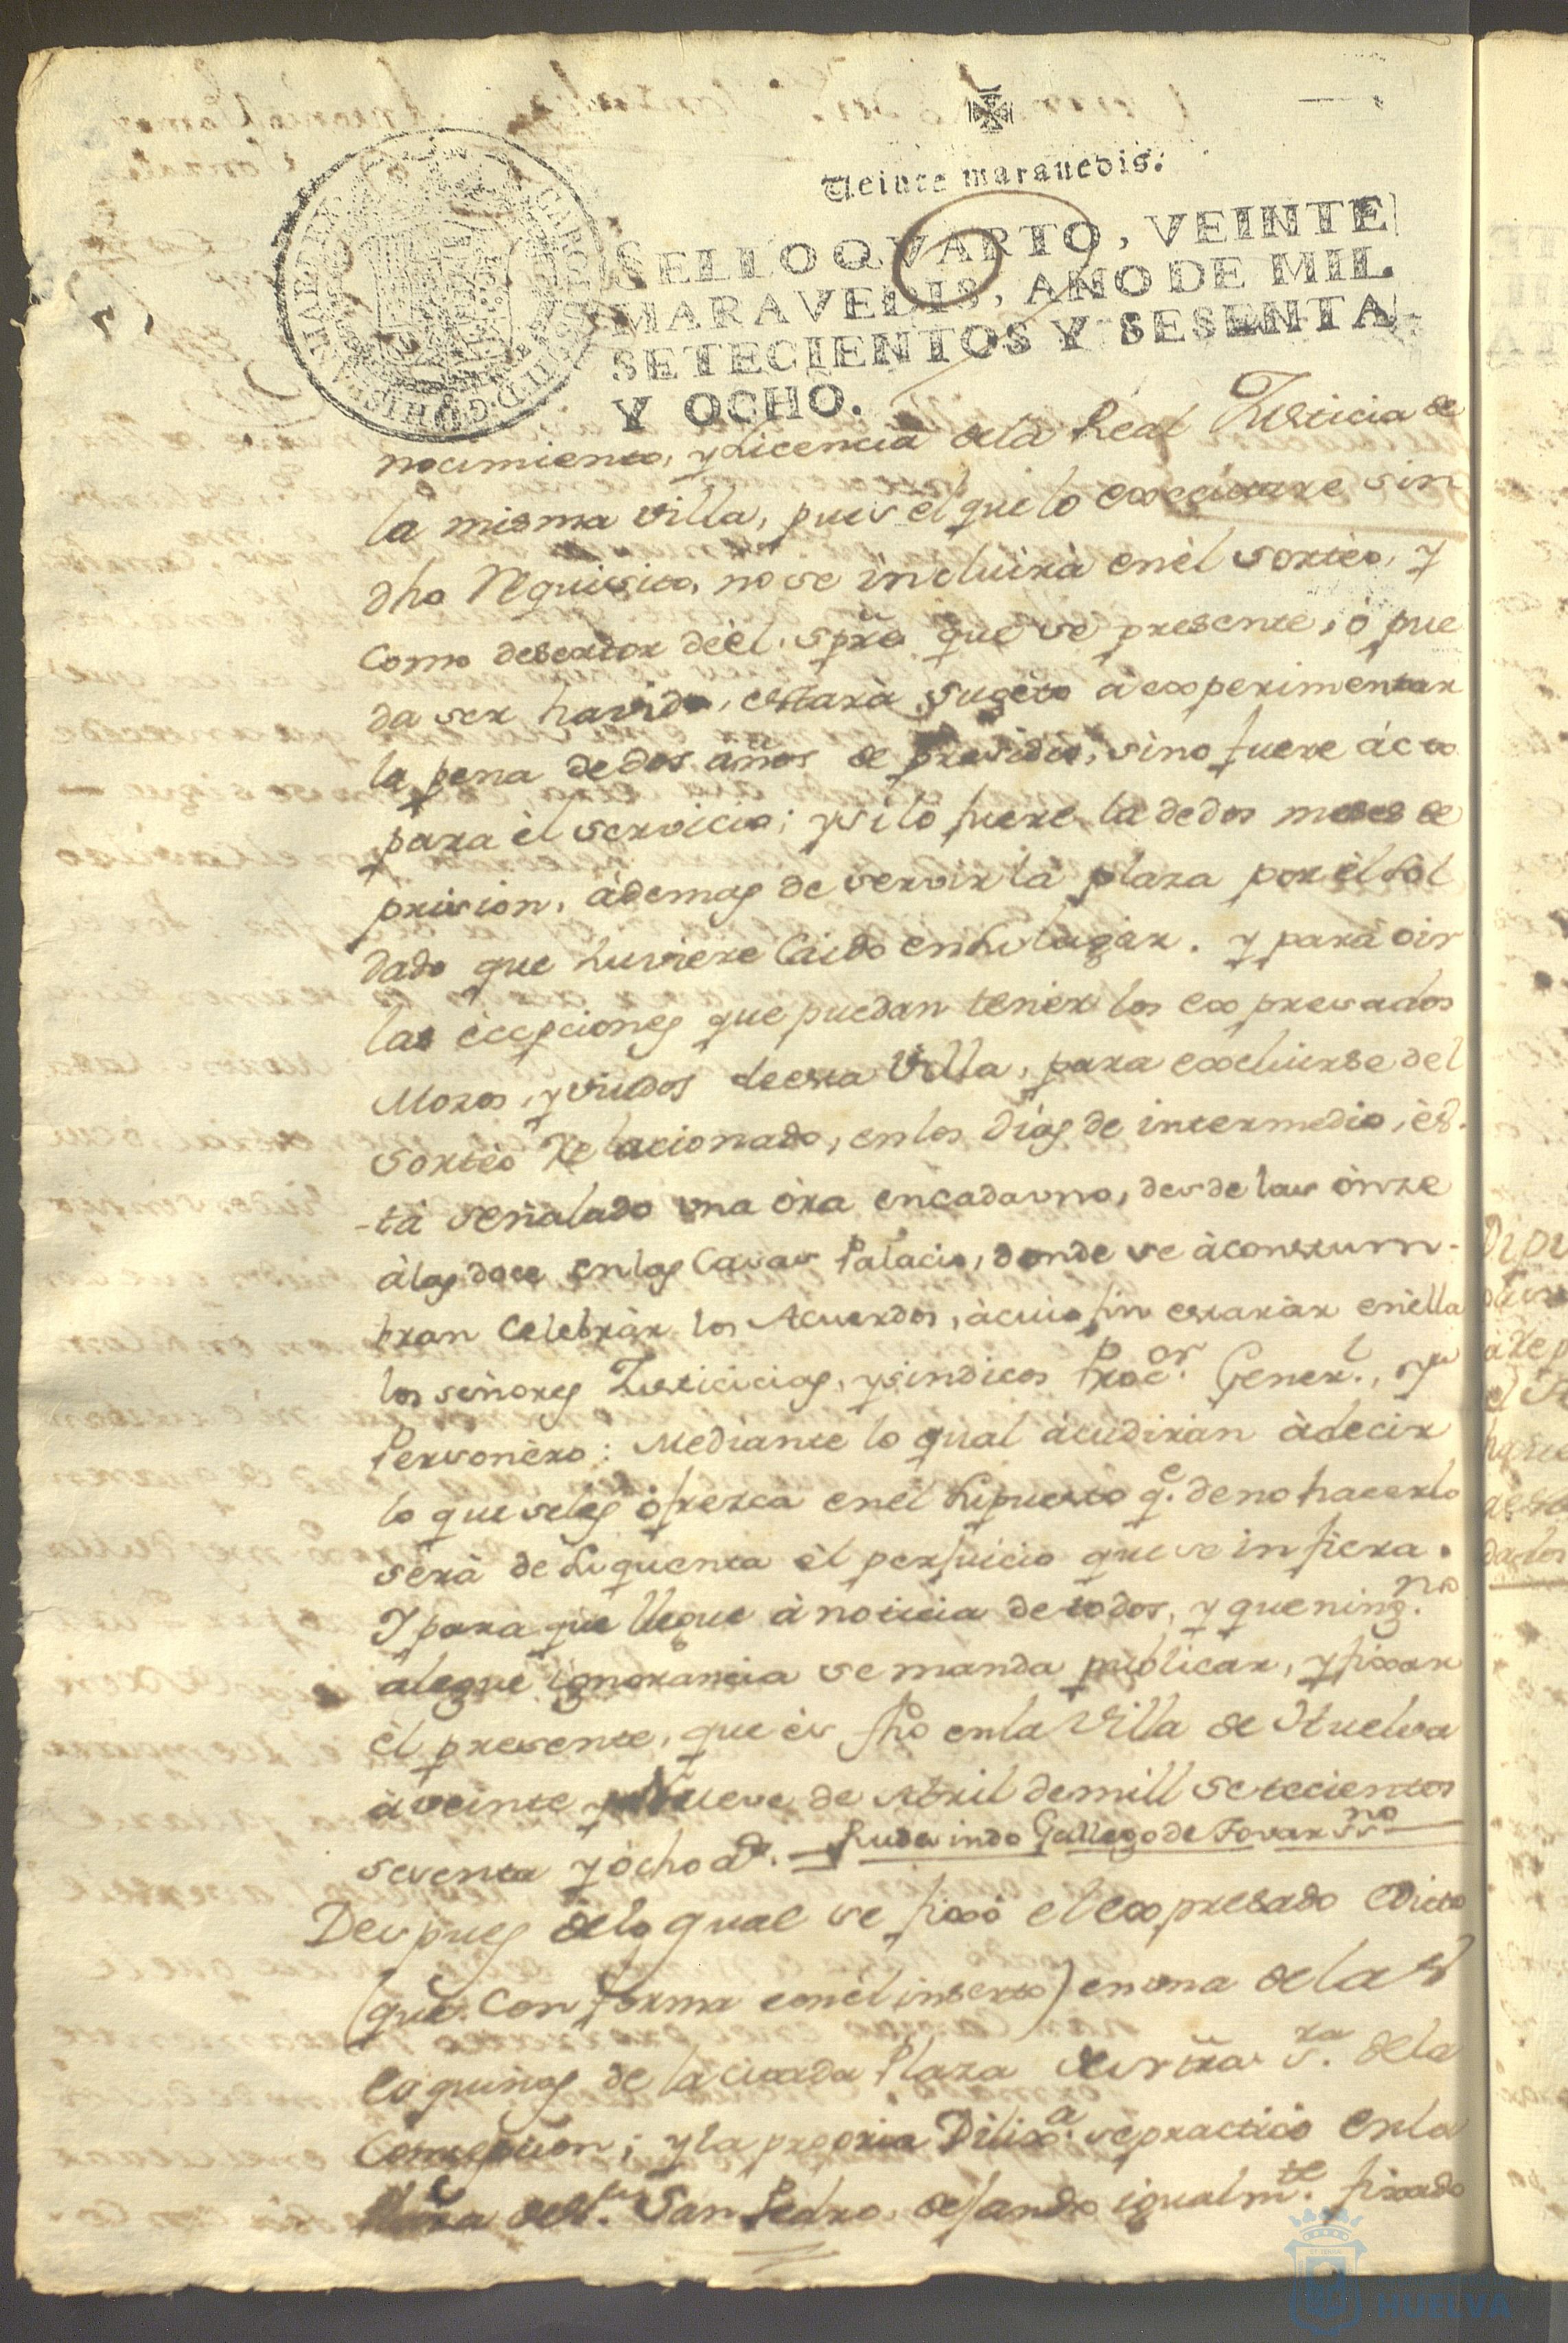 Veinte marauedis.
SELLO QVARTO, VEINTE
MARAVEDIS, AÑO DE MIL
SETECIENTOS Y SESENTA
Y OCHO.
nocimiento, y Licencia dela Real Justicia de
la misma villa, pues èl que lo execùtare sin
dho Requisito, no se incluirà enèl sorteo, y
como desertor deèl, spre que se presente, ò pue
da ser havido, estarà sugèto à experimentar
la pena de dos años de presidio, sino fuere àcto
para èl servicio; y si lo fuere la de dos meses de
prision, àdemas de servir la plaza por èl Sol
dado que huviere Caido en su lugar. y para oir
las ècepciones que puedan tener los expresados
Mozos, y viudos de esta Villa, para excluirse del
sorteo Relacionado, en los dias de intermedio, ès-
-tà señalado una òra en cada uno, desde las ònze
à las doce en las Casas Palacio, donde se àcostum-
bran Celebrar los Acuerdos, àcuio fin estaràn enèlla
los señores Justicicias, y sindicos Procor. Generl., y
Personèro: Mediante lo qual àcudiràn àdecir
lo que seles òfrezca enèl Supuesto qe. de no hacerlo
serà de su quenta èl perjuicio que se infiera.
Y para que llegue à noticia de todos, y que ningno.
alegue ignorancia se manda publicar, y fixar
èl presente, que ès fho en la Villa de Huelva
à veinte y Nueve de Abril de mill setecientos
sesenta y òcho as. = Rudesindo Gallego de Tovar Ssno
Despues delo qual se fixò el expresado Edicto
(que Conforma conèl inserto) en una de las
esquinas de la citada Plaza de nra Sra. dela
Concepcion; y la propria Dilixa. se practicò en la
de Sr. San Pedro, dejando igualmte. fixado
HUELVA